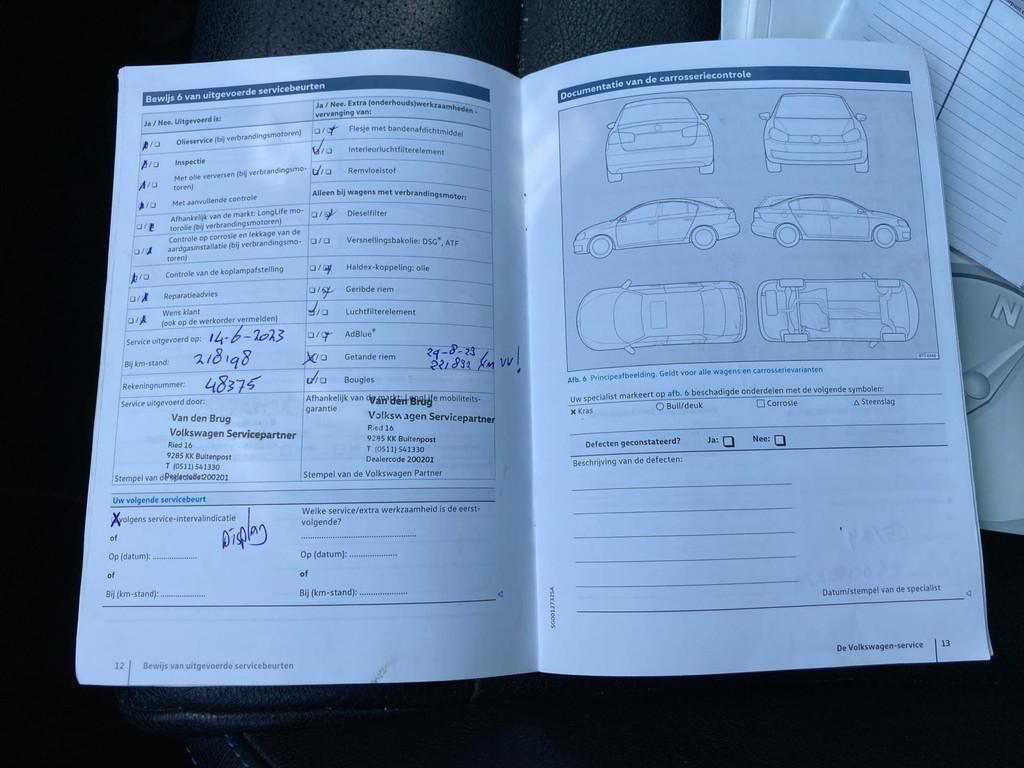 Bewijs 6 van uitgevoerde servicebeurten
Ja / Nee. Uitgevoerd is:
Olieservice (bij verbrandingsmotoren)
Inspectie
Met olie verversen (bij verbrandingsmo-
toren)
Met aanvullende controle
Afhankelijk van de markt: LongLife mo-
torolie (bij verbrandingsmotoren)
Controle op corrosie en lekkage van de
aardgasinstallatie (bij verbrandingsmo-
toren)
Controle van de koplampafstelling
Reparatieadvies
Wens klant
(ook op de werkorder vermelden)
Service uitgevoerd op: 14-6-2023
Bij km-stand: 218198
Rekeningnummer: 48375
Service uitgevoerd door:
Van den Brug
Volkswagen Servicepartner
Ried 16
9285 KK Buitenpost
T (0511) 541330
Dealercode 200201
Stempel van de specialist
Ja / Nee. Extra (onderhouds)werkzaamheden -
vervanging van:
Flesje met bandenafdichtmiddel
Interieurluchtfilterelement
Remvloeistof
Alleen bij wagens met verbrandingsmotor:
Dieselfilter
Versnellingsbakolie: DSG®, ATF
Haldex-koppeling: olie
Geribde riem
Luchtfilterelement
AdBlue®
Getande riem 29-8-23
221.832 km VV!
Bougies
Afhankelijk van de markt: LongLife mobiliteits-
garantie
Van den Brug
Volkswagen Servicepartner
Ried 16
9285 KK Buitenpost
T (0511) 541330
Dealercode 200201
Stempel van de Volkswagen Partner
Uw volgende servicebeurt
volgens service-intervalindicatie
Display
of
Op (datum): ..................
of
Bij (km-stand): ..................
Welke service/extra werkzaamheid is de eerst-
volgende?
Op (datum): ...................
of
Bij (km-stand): ...................
12 Bewijs van uitgevoerde servicebeurten
Documentatie van de carrosseriecontrole
Afb. 6 Principeafbeelding. Geldt voor alle wagens en carrosserievarianten
Uw specialist markeert op afb. 6 beschadigde onderdelen met de volgende symbolen:
x Kras ○ Buil/deuk □ Corrosie △ Steenslag
Defecten geconstateerd? Ja: Nee:
Beschrijving van de defecten:
Datum/stempel van de specialist
SG0012732SA
De Volkswagen-service 13
N